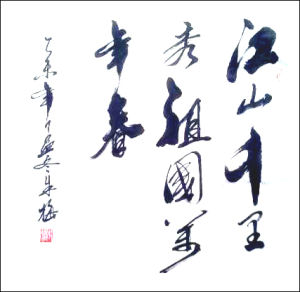 江山千里
秀祖國萬
年春
乙未年冬梅